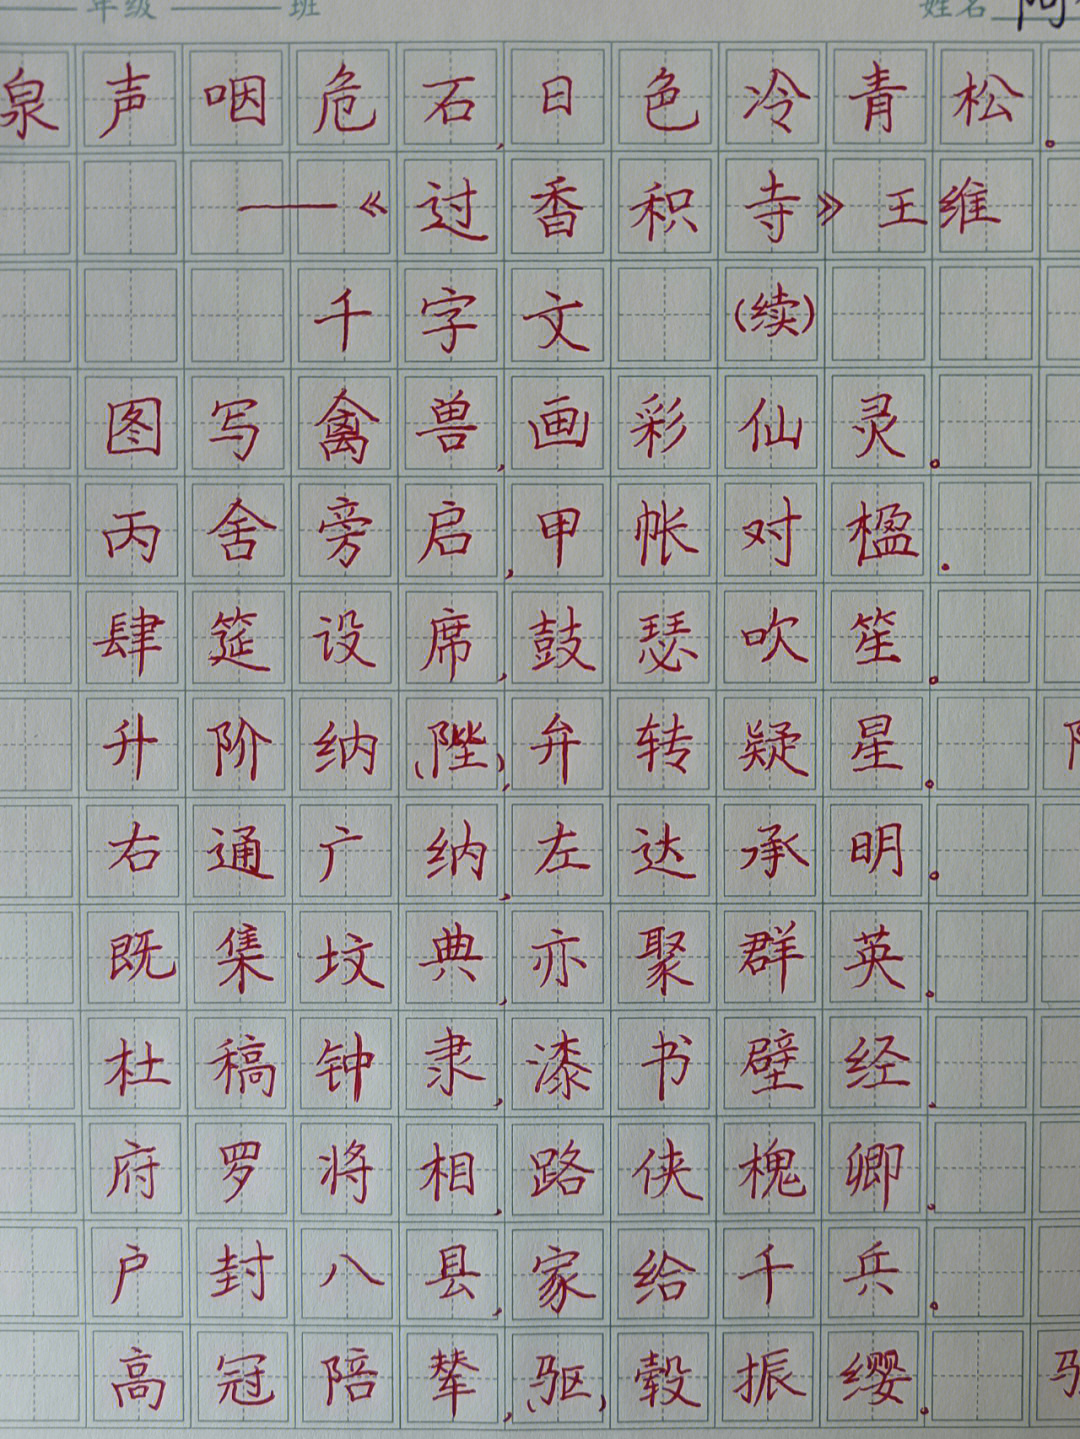 年级 班 姓名
泉声咽危石,日色冷青松。
——《过香积寺》王维
千字文 (续)
图写禽兽,画彩仙灵。
丙舍旁启,甲帐对楹.
肆筵设席,鼓瑟吹笙。
升阶纳(陛),弁转疑星。
右通广纳,左达承明。
既集坟典,亦聚群英.
杜稿钟隶,漆书壁经.
府罗将相,路侠槐卿.
户封八县,家给千兵。
高冠陪辇,(驱)毂振缨.